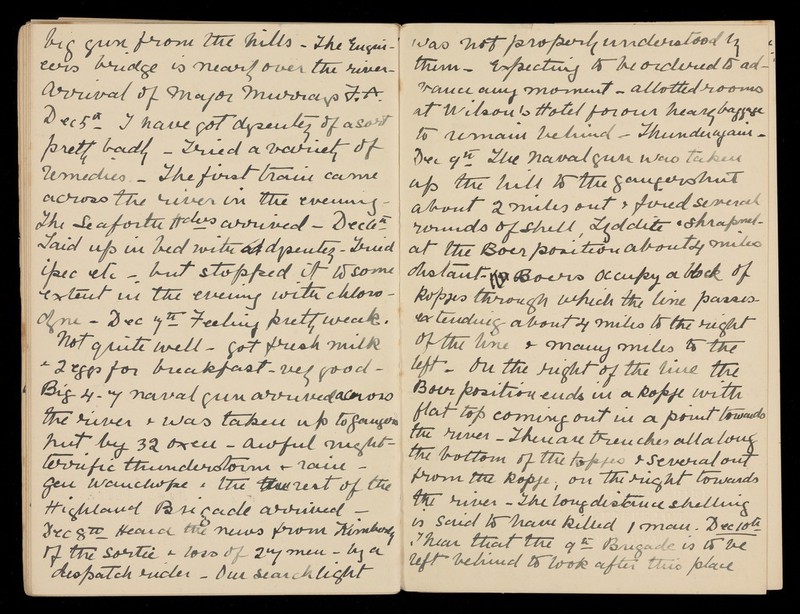 big gun from the hills - The Engin-
eers bridge is nearly over the river -
Arrival of Major Murray's F.A.
Dec 5th I have got dysentery of a sort
pretty badly - Tried a variety of
remedies - The first train came
across the river in the evening -
The Seaforth Hdrs arrived - Dec 6th
Laid up in bed with dysentery - Tried
ipec etc - but stopped it to some
extent in the evening with chloro-
dyne - Dec 7th Feeling pretty weak.
Not quite well - got fresh milk
& 2 eggs for breakfast - very good -
Big 4.7 naval gun arrived across
the river & was taken up to gangers
hut by 32 oxen - Awful night -
terrific thunderstorm & rain -
Gen Wauchope & the rest of the
Highland Brigade arrived -
Dec 8th Heard the news from Kimberley
of the sortie & loss of 24 men - by a
despatch rider - Our searchlight
was not properly understood by
them - Expecting to be ordered to ad-
vance any moment - allotted rooms
at Wilson's Hotel for our heavy baggage
to remain behind - Thunder again -
Dec 9th The naval gun was taken
up the hill to the gangers hut
about 2 miles out & fired several
rounds of shell, Lyddite & shrapnel -
at the Boer position about 4 miles
distant - Boers occupy a block of
kopjes through which the line passes -
extending about 4 miles to the right
of the line & many miles to the
left - On the right of the line the
Boer position ends in a kopje with
flat top coming out in a point towards
the river - There are trenches all along
the bottom of the kopjes & several out
from the kopje, on the right towards
the river - The long distance shelling
is said to have killed 1 man. Dec 10th
I hear that the 9th Brigade is to be
left behind to look after this place